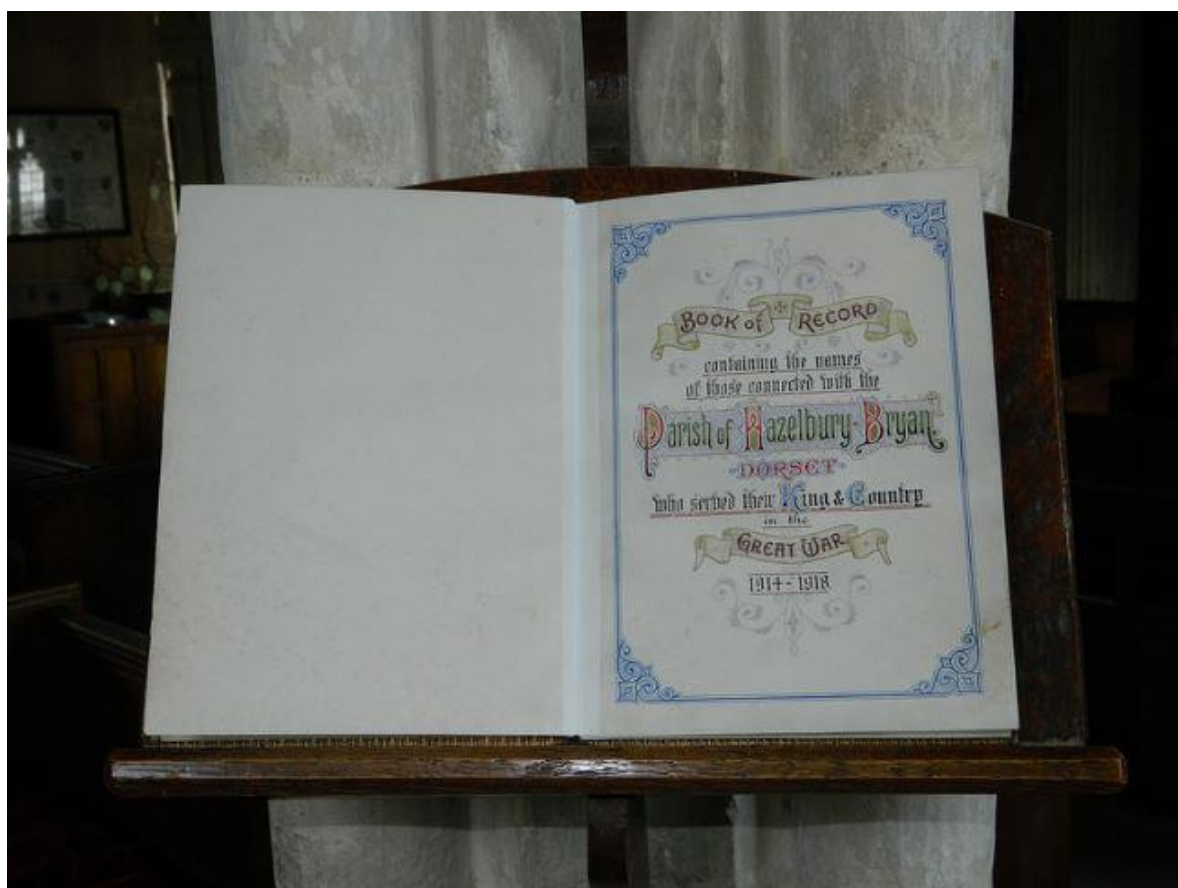 BOOK of RECORD
containing the names
of those connected with the
Parish of Hazelbury-Bryan
-DORSET-
who served their King & Country
in the
GREAT WAR
1914-1918